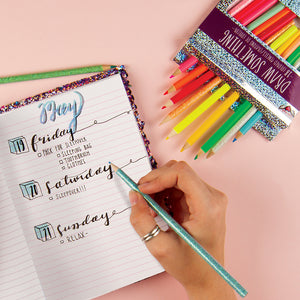 May
19 friday
PACK FOR SLEEPOVER
SLEEPING BAG
TOOTHBRUSH
CLOTHES
20 Saturday
SLEEPOVER!!!
21 Sunday
RELAX~
DRAW SOMETHING